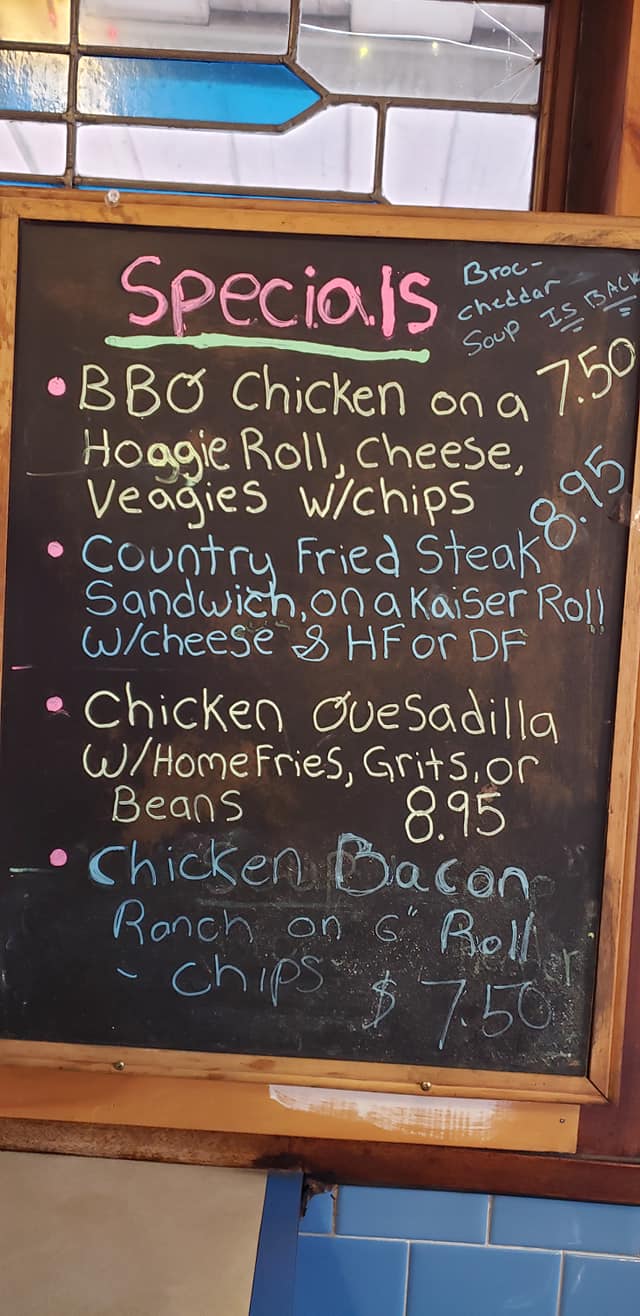 Specials
Broc-
cheddar
Soup IS BACK
• BBQ Chicken on a 7.50
Hoggie Roll, Cheese,
Veagies w/chips
• Country Fried Steak 8.95
Sandwich, on a Kaiser Roll
w/cheese & HF or DF
• Chicken Quesadilla
w/Home Fries, Grits, or
Beans 8.95
• Chicken Bacon
Ranch on 6" Roll
- chips $7.50